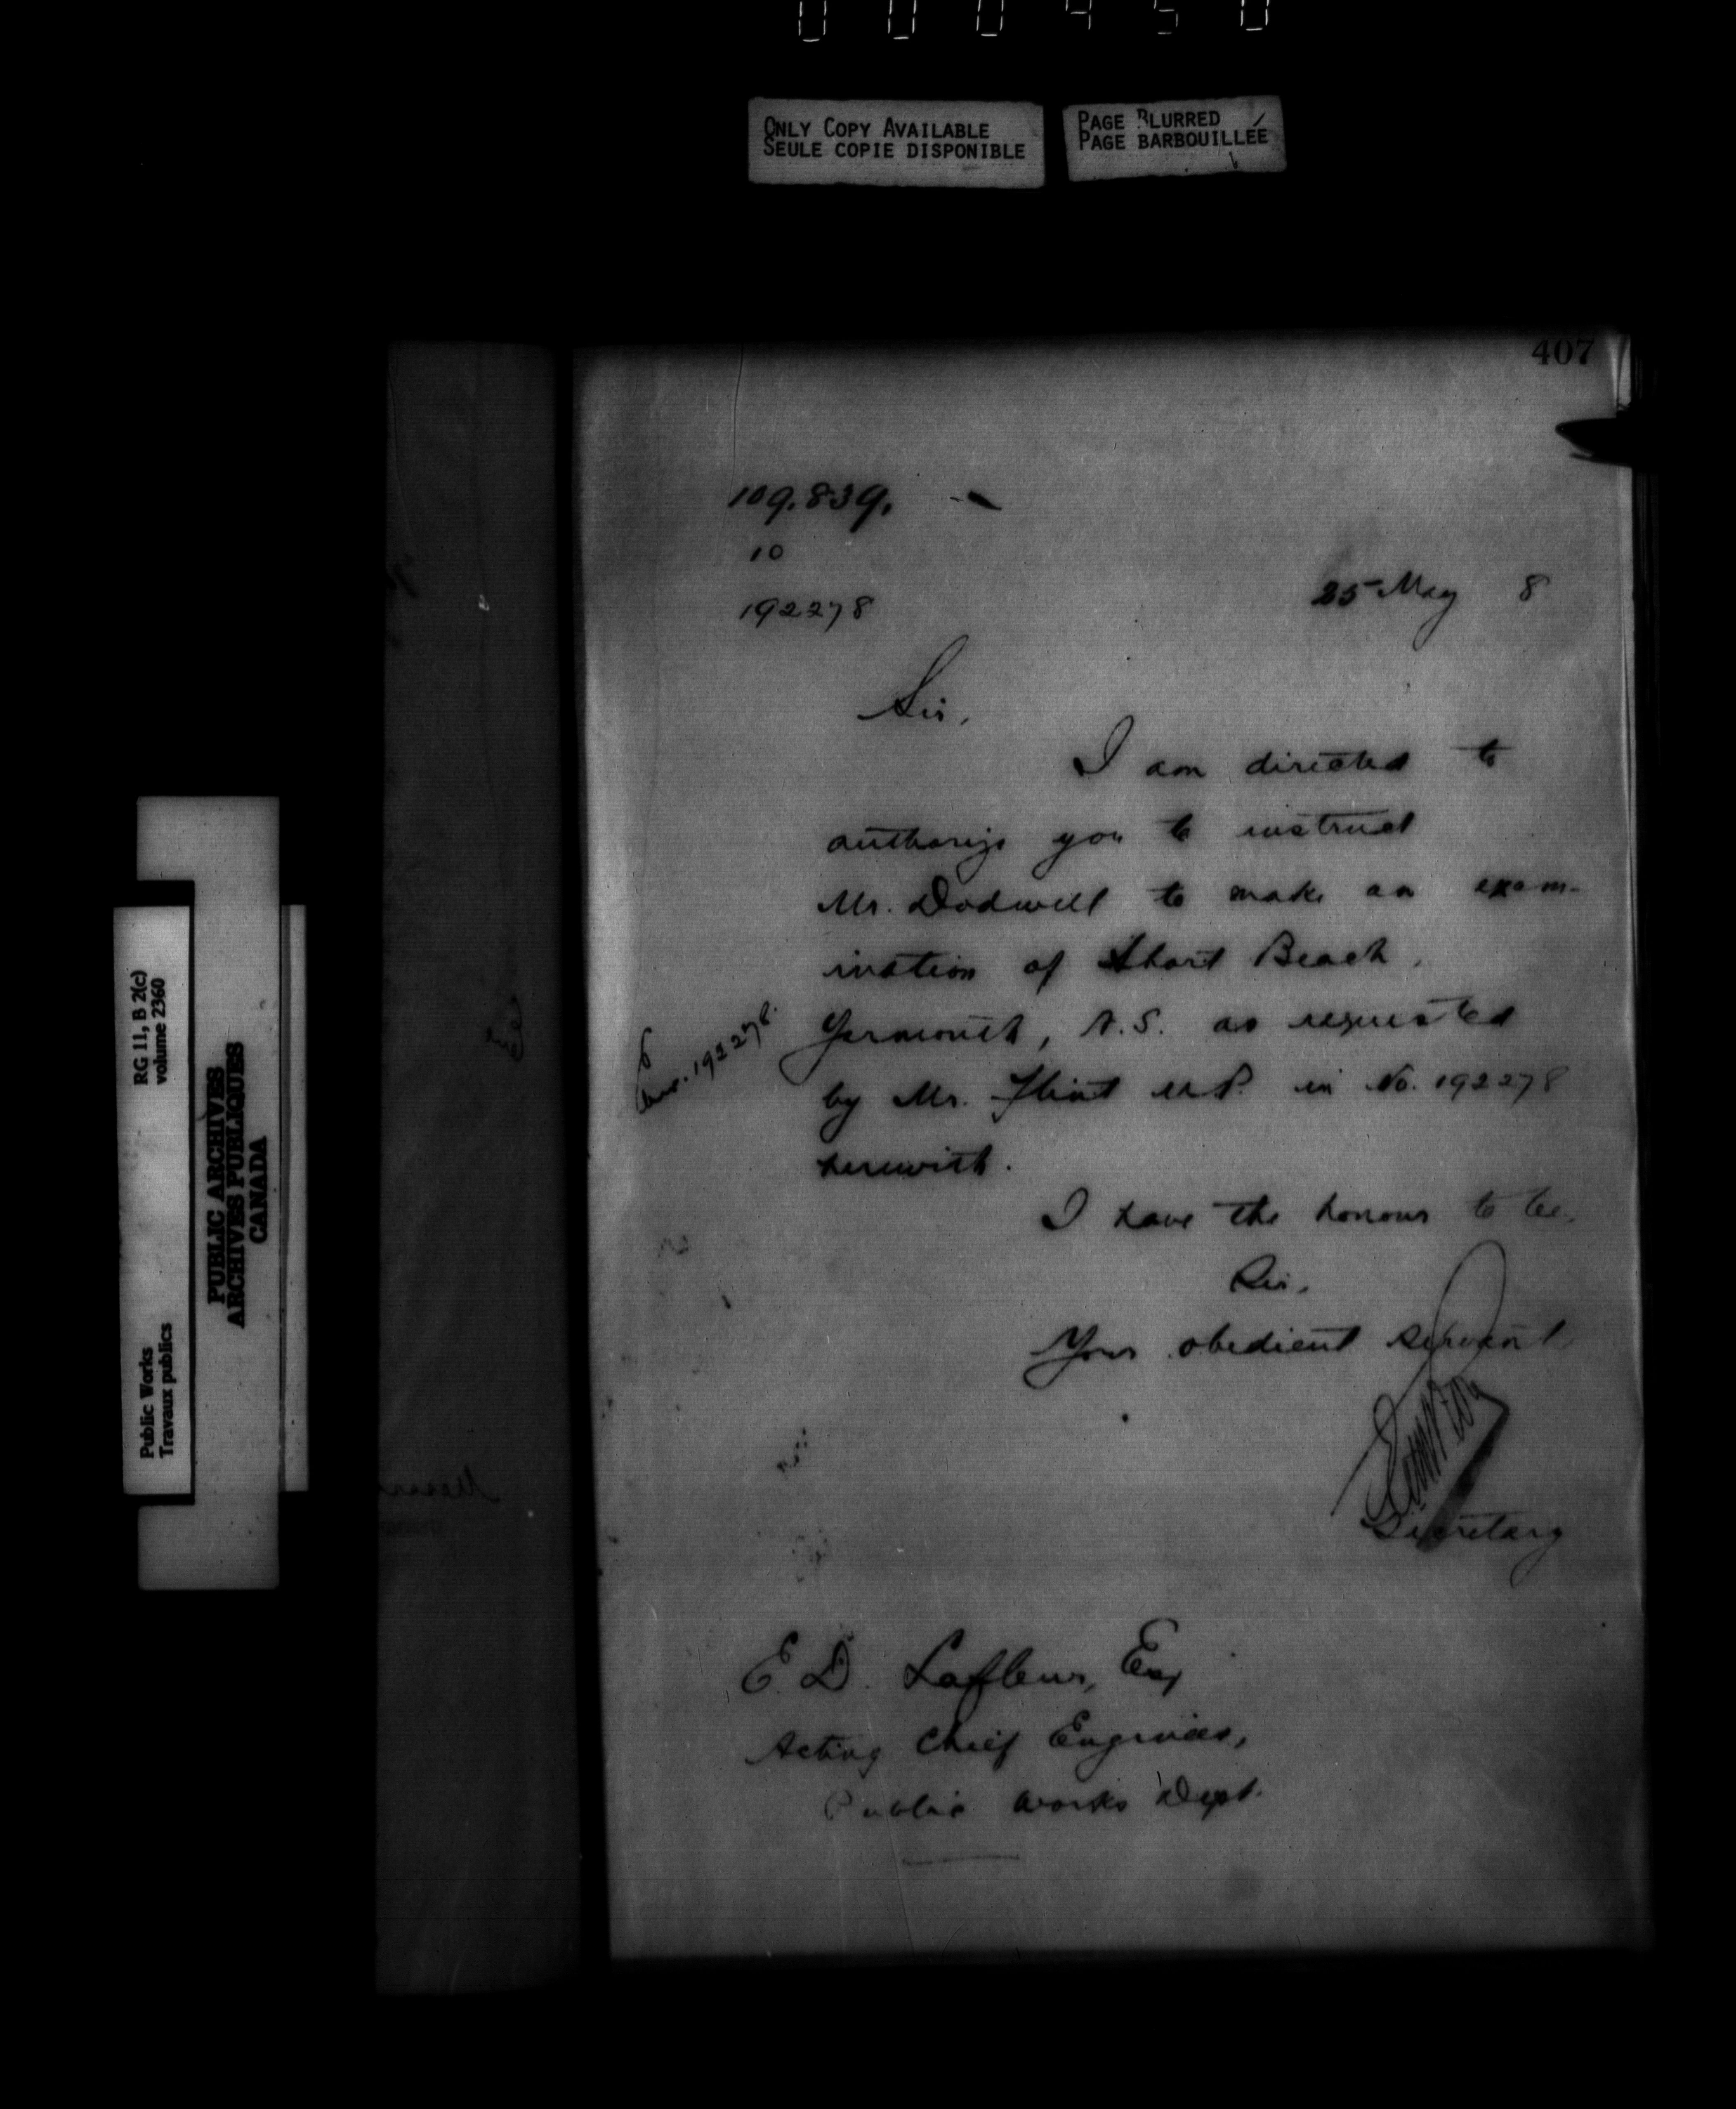 000450
ONLY COPY AVAILABLE
SEULE COPIE DISPONIBLE
PAGE BLURRED
PAGE BARBOUILLÉE
407
109.839.
10
192278
25 May 8
Sir,
I am directed to
authorize you to instruct
Mr. Dodwell to make an exam-
ination of Short Beach,
Yarmouth, N.S. as requested
by Mr. Flint M.P. in No. 192278
herewith.
192278.
I have the honour to be,
Sir,
Your obedient servant
Secretary
E. D. Lafleur, Esq
Acting Chief Engineer,
Public Works Dept.
RG 11, B 2(c)
volume 2360
Public Works
Travaux publics
PUBLIC ARCHIVES
ARCHIVES PUBLIQUES
CANADA